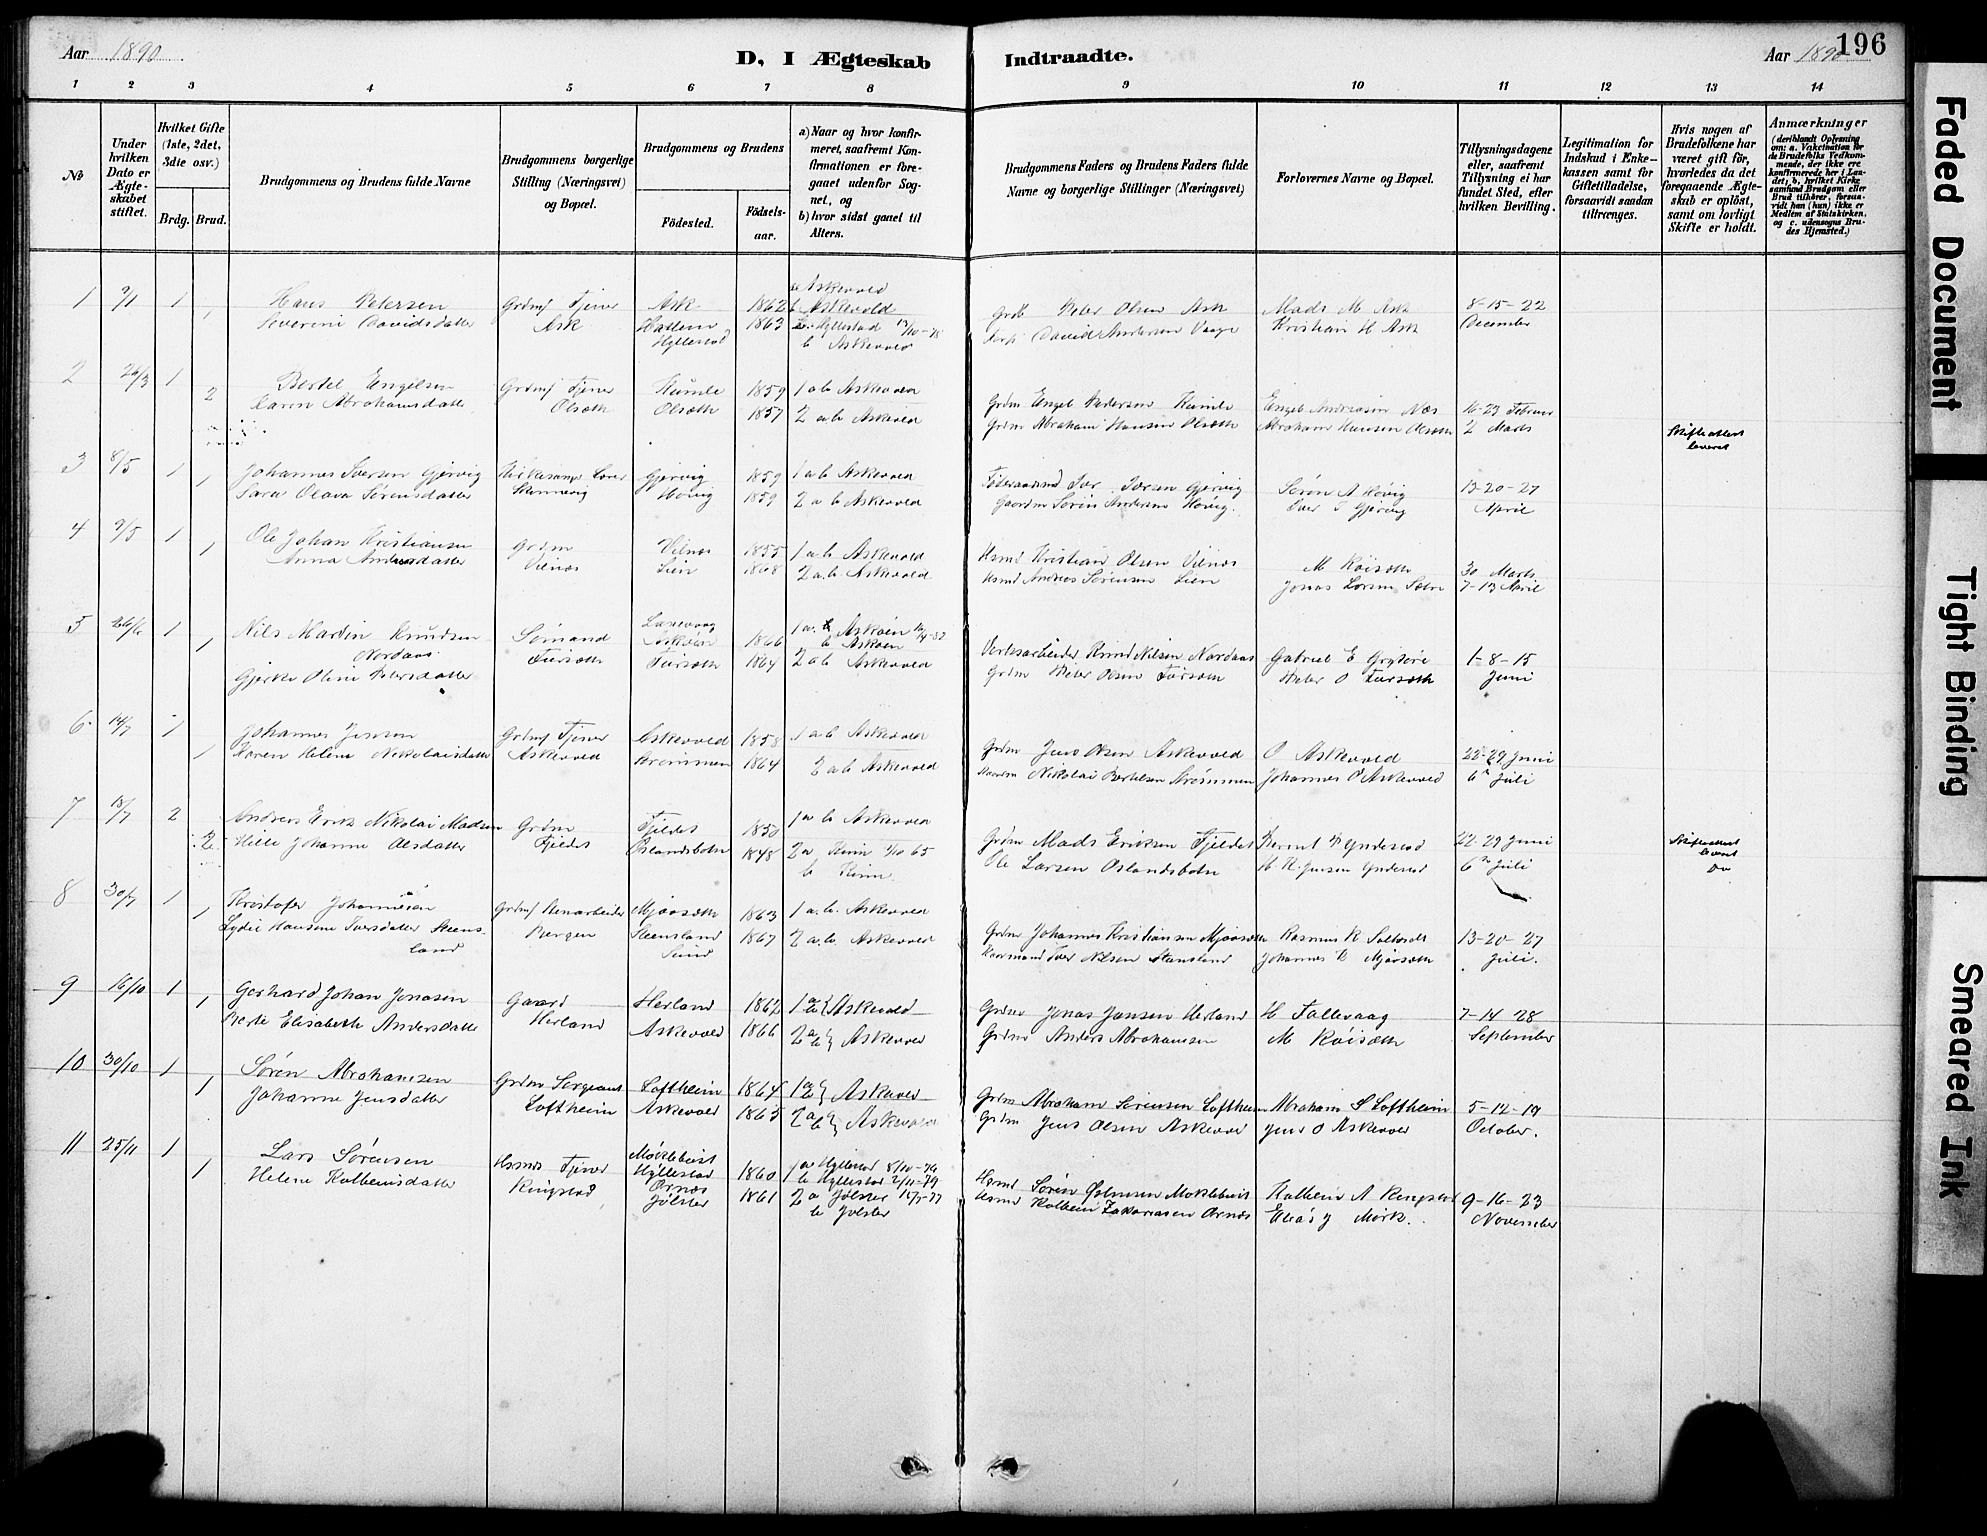 Aar 1890
D, I Ægteskab Indtraadte.
Aar 1890
196
1 2 3 4 5 6 7 8 9 10 11 12 13 14
No
Under hvilken Dato er Ægteskabet stiftet.
Hvilket Gifte (1ste, 2det, 3die osv.)
Brdg. Brud.
Brudgommens og Brudens fulde Navne
Brudgommens borgerlige Stilling (Næringsvei) og Bopæl.
Brudgommens og Brudens
Fødested. Fødselsaar.
a) Naar og hvor konfirmeret, saafremt Konfirmationen er foregaaet udenfor Sognet, og
b) hvor sidst gaaet til Alters.
Brudgommens Faders og Brudens Faders fulde Navne og borgerlige Stillinger (Næringsvei)
Forlovernes Navne og Bopæl.
Tillysningsdagene eller, saafremt Tillysning ei har fundet Sted, efter hvilken Bevilling.
Legitimation for Indskud i Enkekassen samt for Giftetilladelse, forsaavidt saadan tiltrænges.
Hvis nogen af Brudefolkene har været gift før, hvorledes da det foregaaende Ægteskab er opløst, samt om lovligt Skifte er holdt.
Anmærkninger (deriblandt Oplysning om: a. Vakcination for de Brudefolks Vedkommende, der ikke ere konfirmerede her i Landet; b. hvilket Kirkesamfund Brudgom eller Brud tilhører, forsaavidt han (hun) ikke er Medlem af Statskirken, og c. udensogns Brudes Hjemsted.)
1 9/1 1 Hans Petersen Grdmf Tjener Ask 1862 a Askevold b Askevold Peter Olsen Ask Mads M Ask 8-15-22
1 Severine Davidsdatter Ask Hatlem Hyllestad 1863 Hyllestad b Askevold David Andersen Vaage Kristian H Ask December
2 26/3 1 Bertel Engelsen Grdmf Tjener Rumle 1859 1 a b Askevold Grdm Engel Pedersen Rumle Engel Andreasen Næs 16-23 Februar
2 Karen Abrahamsdatter Olsæth Olsæth 1857 2 a b Askevold Grdm Abraham Hansen Olsæth Abraham Hansen Olsæth 2 Marts Skifteattest leveret
3 8/5 1 Johannes Iversen Gjervig Gjervig 1859 1 a b Askevold Iver Iversen Gjervig Søren A Høvig 13-20-27
1 Sara Olava Sørensdatter Høvig 1859 2 a b Askevold Gaardm Søren Andersen Høvig. Iver I Gjervig April
4 9/5 1 Ole Johan Kristiansen Grdm Vilnæs 1855 1 a b Askevold Hsmd Kristian Olsen Vilnæs M Røisæth 30 Marts
1 Anna Andreasdatter Vilnæs Lien 1868 2 a.b. Askevold Hsmd Andreas Sørensen Lien Jonas Larsen Sætre 7-13 April
5 26/6 1 Nils Martin Knudsen Nordaas Sømand Laxevaag Askøen 1866 1 a. Askøen b Askøen Verksarbeider Knud Nilsen Nordaas Gabriel E Grytøre 1-8-15
1 Gjerke Oline Petersdatter Fursæth Fursæth 1864 2 a b Askevold Grdm Peter Olsen Fursæth Peter O Fursæth Juni
6 14/7 1 Johannes Jensen Grdmf Tjener Askevold 1858 1 a b Askevold Grdm Jens Olsen Askevold O Askevold 22-29 Juni
1 Karen Helene Nikolaisdatter Askevold Strømmen 1864 2 a b Askevold Nikolai Bertelsen Strømmen Johannes O Askevold 6te Juli
7 18/7 2 Andreas Erik Nikolai Madsen Grdm Fjeldet 1850 1 a b Askevold Grdm Mads Eriksen Fjeldet Bernt P Yndestad 22-29 Juni Skifteattest leveret
2 Hille Johanne Olsdatter Fjeldet Oslandsbotn 1848 2 a Kinn 1/10 65 b Kinn. Ole Larsen Oslandsbotn H. R. Jensen Yndestad 6te Juli Do
8 30/7 1 Kristofer Johannesen Grdmf Stenarbeider Mjaasæth 1863 1 a.b. Askevold Grdm Johannes Kristiansen Mjaasæth Rasmus R 13-20-27
1 Lydie Hansine Iversdatter Steensland Bergen Steensland Sund 1867 2 a.b. Askevold Iver Nilsen Stensland Johannes K Mjaasæth Juli.
9 16/10 1 Gerhard Johan Jonasen Gaard Herland 1862 1 a b Askevold Grdm Jonas Jansen Herland H Tallevaag 7-14 28
1 Berte Elisabeth Andersdatter Herland Askevold 1866 2 a b Askevold Grdm Anders Abrahamsen M Røisæth September
10 30/10 1 Søren Abrahamsen Grdm Sergeant Loftheim 1864 1 a b Askevold Grdm Abraham Sørensen Loftheim Abraham S Loftheim 5-12-19
1 Johanne Jensdatter Loftheim Askevold 1865 2 a b Askevold Grdm Jens Olsen Askevold Jens O Askevold October.
11 25/11 1 Lars Sørensen Hsmds Tjener Møklebust Hyllestad 1860 1 a Hyllestad 8/10-76 b Hyllestad 2/11-79 Hsmd Søren Møklebust Kolbein A Ringstad 9-16-23
1 Helene Kolbeinsdatter Ringstad Ornæs Jølster 1861 2 a Jølster b Jølster Hsmd Kolbein Zakariasen Ornæs Elias J Mørk. November
Faded Document
Tight Binding
Smeared Ink